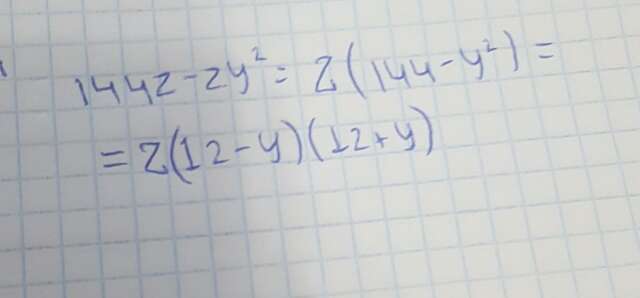 144z-zy²= z(144-y²)=
=z(12-y)(12+y)